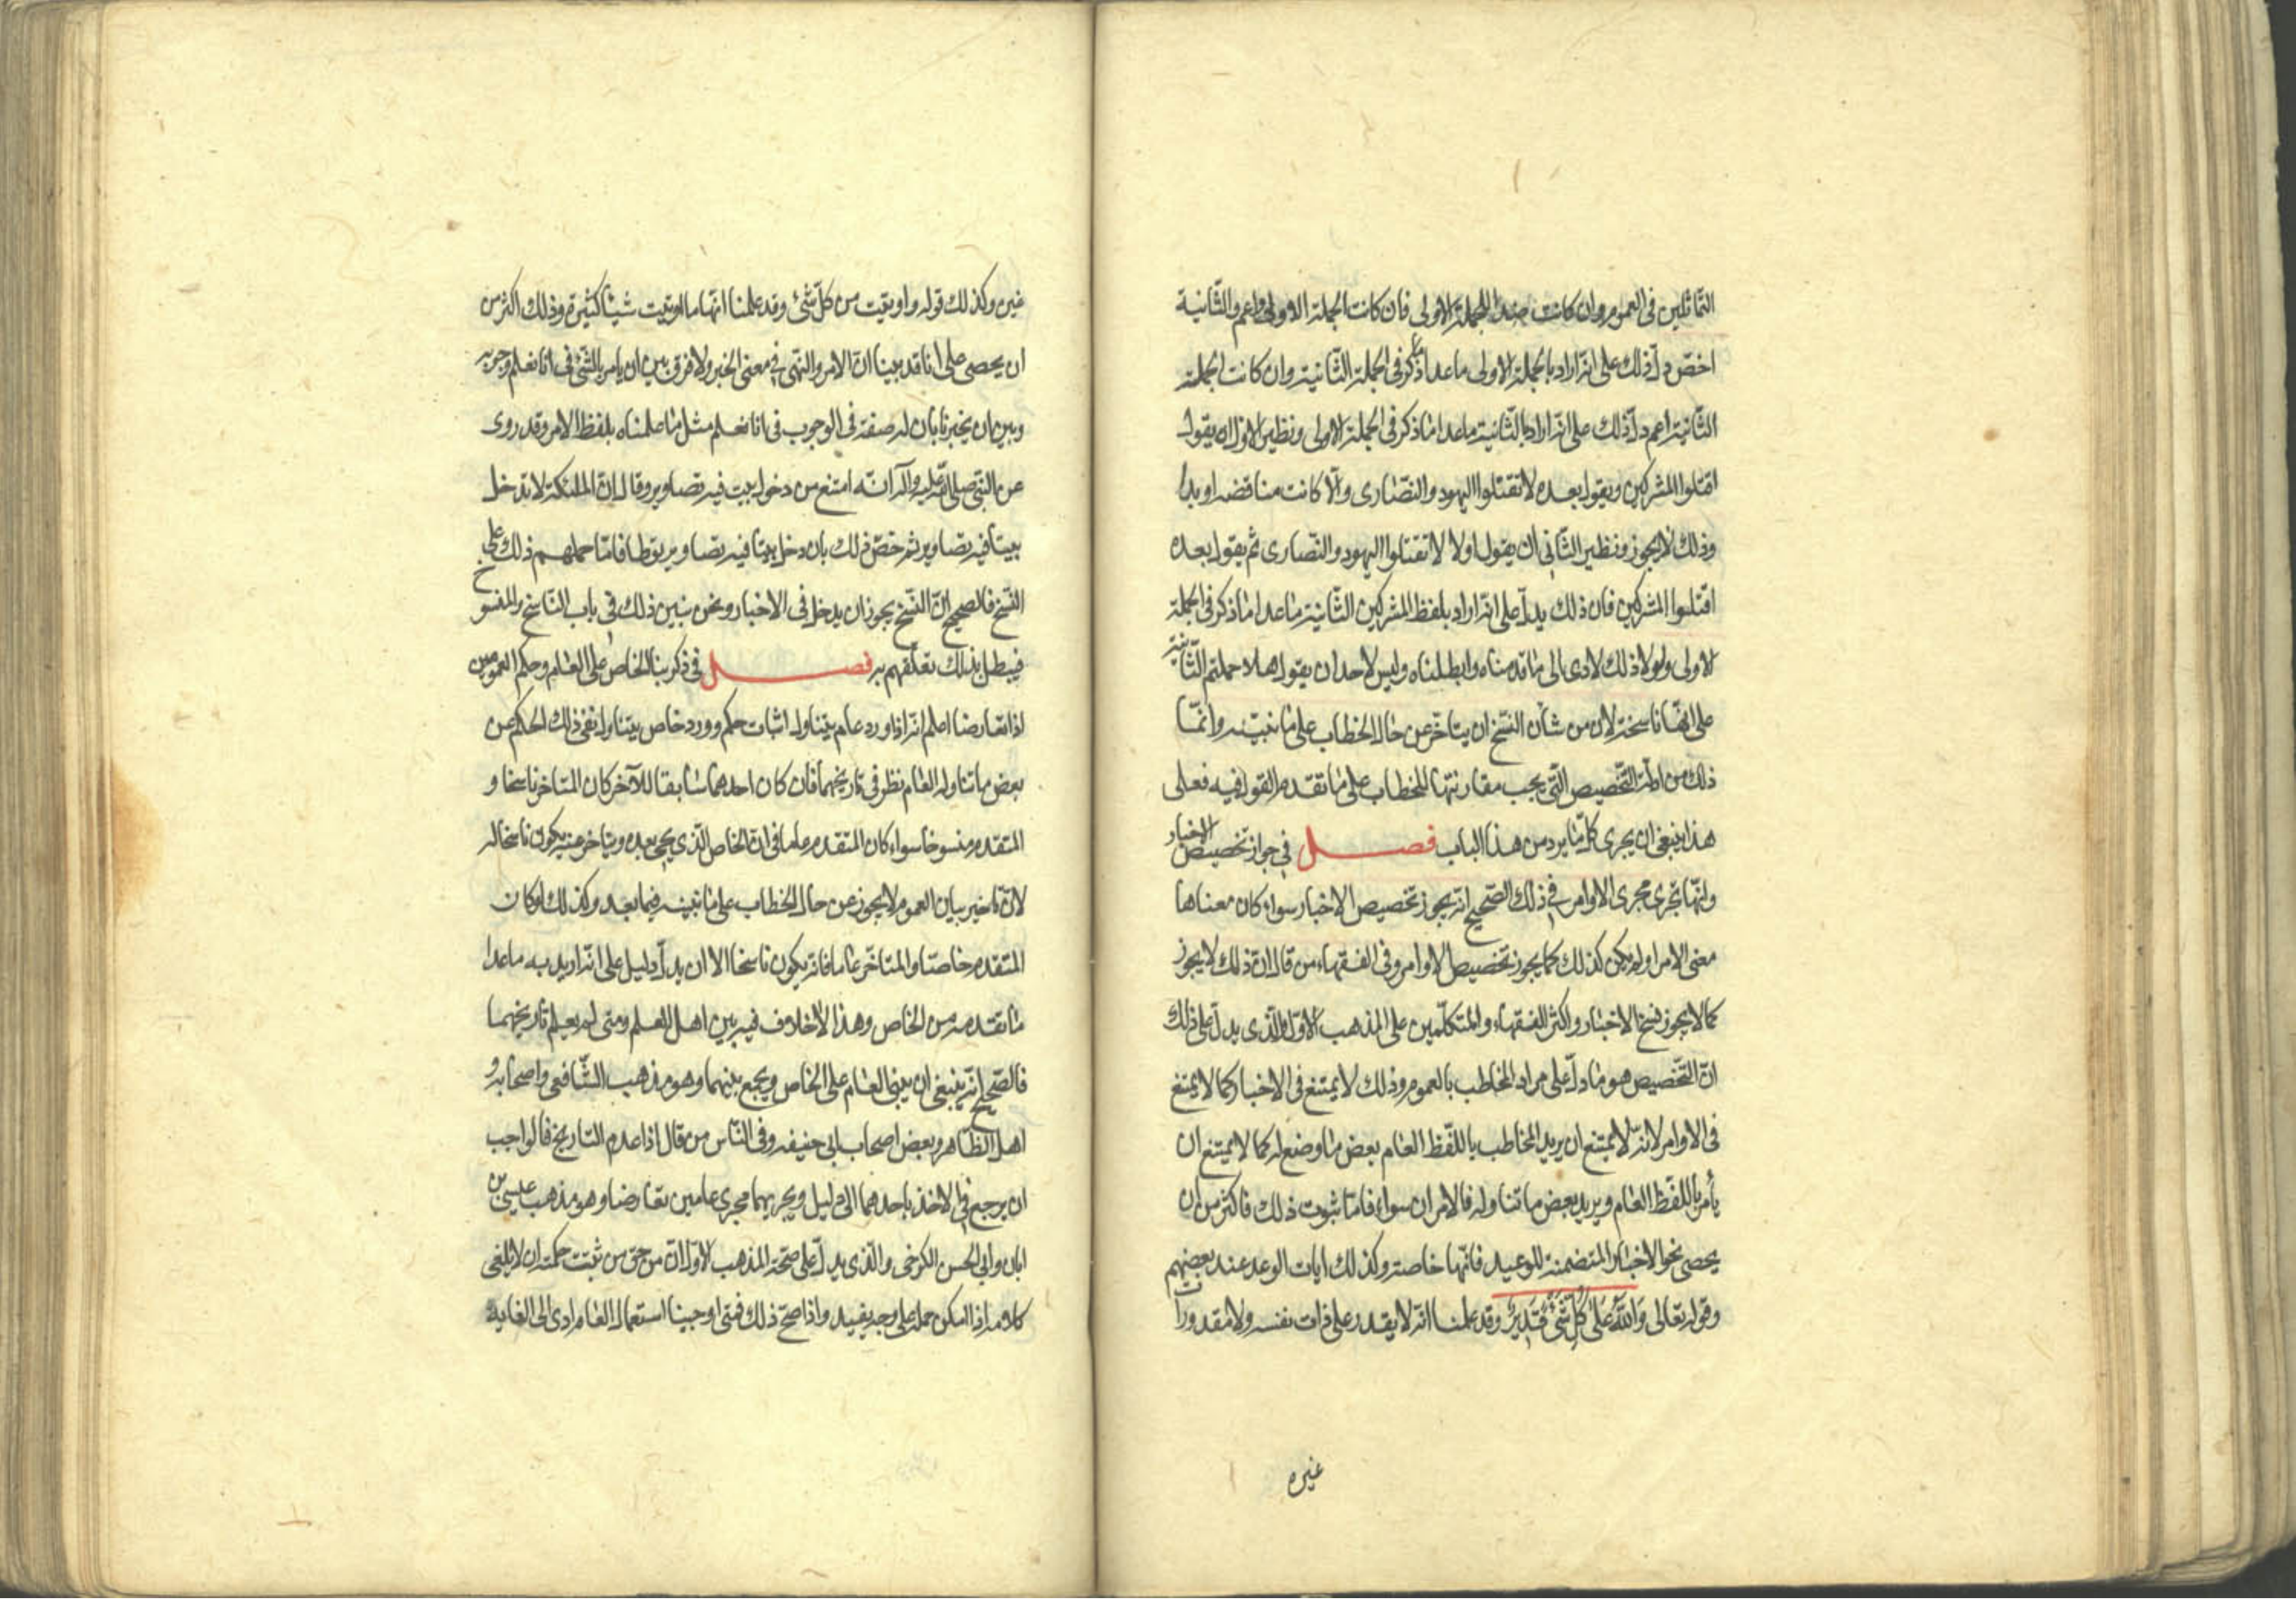 التماثلين في العموم وان كانت ضد الجملة الاولى فان كانت الجملة الاولى اعم والثّانية
اخصّ دلّ ذلك على انّه اراد بالجملة الاولى ماعدا ما ذكر في الجملة الثّانية وان كانت الجملة
الثّانية اعم دلّ ذلك على انّه اراد بالثّانية ماعدا ما ذكر في الجملة الاولى ونظير الاوّل ان يقول
اقتلوا المشركين ويقول بعده لا تقتلوا اليهود والنّصارى والّا كانت مناقضة او بداء
وذلك لا يجوز ونظير الثّاني ان يقول اولا لا تقتلوا اليهود والنّصارى ثم يقول بعده
اقتلوا المشركين فان ذلك يدلّ على انّه اراد بلفظ المشركين الثّانية ماعدا ما ذكر في الجملة
الاولى ولولا ذلك لادى الى ما قدمناه وابطلناه وليس لاحد ان يقول هلا حملتم الثّانية
على انّها ناسخة لان من شأن النّسخ ان يتاخّر عن حال الخطاب على ما نبيّنه وانّما
ذلك من ادلّة التّخصيص الّتي يجب مقارنتها للخطاب على ما تقدم القول فيه فعلى
هذا ينبغي ان يجرى كلّ ما يرد من هذا الباب فصل في جواز تخصيص الاخبار
وانّها تجرى مجرى الاوامر في ذلك الصّحيح انّه يجوز تخصيص الاخبار سواء كان معناها
معنى الامر او لم يكن كذلك كما يجوز تخصيص الاوامر وفي الفقهاء من قال انّ ذلك لا يجوز
كما لا يجوز نسخ الاخبار واكثر الفقهاء والمتكلّمين على المذهب الاوّل والّذي يدلّ على ذلك
انّ التّخصيص هو ما دلّ على مراد المخاطب بالعموم وذلك لا يمتنع في الاخبار كما لا يمتنع
في الاوامر لانّه لا يمتنع ان يريد المخاطب باللّفظ العام بعض ما وضع له كما لا يمتنع ان
يأمر باللّفظ العام ويريد بعض ما تناوله فالامران سواء فامّا ثبوت ذلك فاكثر من ان
يحصى نحو الاخبار المتضمنة للوعيد فانّها خاصة وكذلك ايات الوعد عند بعضهم
وقوله تعالى وَاللّٰهُ عَلَىٰ كُلِّ شَيْءٍ قَدِيرٌ وقد علمنا انّه لا يقدر على ذات نفسه ولا مقدورات
غيره
غيره وكذلك قوله واوتيت من كلّ شيء وقد علمنا انّها ما اوتيت شيئا كثيرة وذلك اكثر من
ان يحصى على انا قد بينا انّ الامر والنّهي في معنى الخبر ولا فرق بين ان يامر بالشّيء في انا نعلم وجوبه
وبين ان يخبرنا بان له صفة في الوجوب في انا نعلم مثل ما علمناه بلفظ الامر وقد روى
عن النّبي صلى اللّه عليه وآله انّه امتنع من دخول بيت فيه تصاوير وقال انّ الملئكة لا تدخل
بيتا فيه تصاوير ثم خصّ ذلك بان دخل بيتا فيه تصاوير توطا فامّا حملهم ذلك على
النّسخ فالصحيح انّ النّسخ يجوز ان يدخل في الاخبار ونحن نبين ذلك في باب النّاسخ والمنسوخ
فيبطل بذلك تعلّقهم به فصل في ذكر بناء الخاص على العام وحكم العمومين
اذا تعارضا اعلم انّه اذا ورد عام يتناول اثبات حكم وورد خاص يتناول نفى ذلك الحكم عن
بعض ما تناوله العام نظر في تاريخهما فان كان احدهما سابقا للآخر كان المتاخر ناسخا و
المتقدم منسوخا سواء كان المتقدم عاما في انّ الخاص الّذي يجىء بعده ويتاخر عنه يكون ناسخا له
لانّ تاخير بيان العموم لا يجوز عن حال الخطاب على ما نبينه فيما بعد وكذلك لو كان
المتقدم خاصّا والمتاخّر عاما فانّه يكون ناسخا الا ان يدلّ دليل على انّه اريد به ماعدا
ما تقدمه من الخاص وهذا لا خلاف فيه بين اهل العلم ومتى لم يعلم تاريخهما
فالصّحيح انّه ينبغي ان يبنى العام على الخاص ويجمع بينهما وهو مذهب الشّافعي واصحابه و
اهل الظّاهر وبعض اصحاب ابى حنيفه وفي النّاس من قال اذا عدم التاريخ فالواجب
ان يرجع في الاخذ باحدهما الى دليل ويجريهما مجرى عامين تعارضا وهو مذهب عيسى بن
ابان وابى الحسن الكرخى والّذي يدلّ على صحّة المذهب الاوّل انّ من حق من ثبتت حكمته ان لا يلغى
كلامه اذا امكن حمله على وجه يفيد واذا صحّ ذلك فمتى اوجبنا استعمال العام ادى الى الغاية